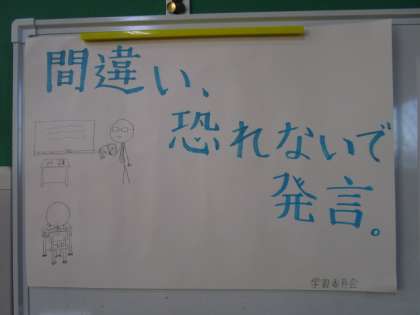 間違い、
恐れないで
発言。
学習委員会